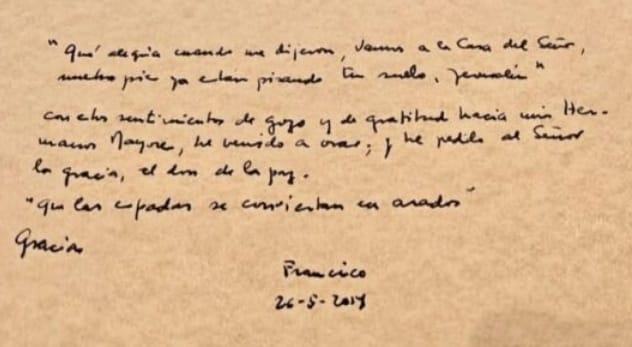 "Qué alegría cuando me dijeron, Vamos a la Casa del Señor,
nuestro pies ya están pisando tu suelo, Jerusalén"
Con estos sentimientos de gozo y de gratitud hacia mis Her-
manos Mayores, he venido a orar; y he pedido al Señor
la gracia, el don de la paz.
"Que las espadas se conviertan en arados"
Gracias
Francisco
26-5-2014